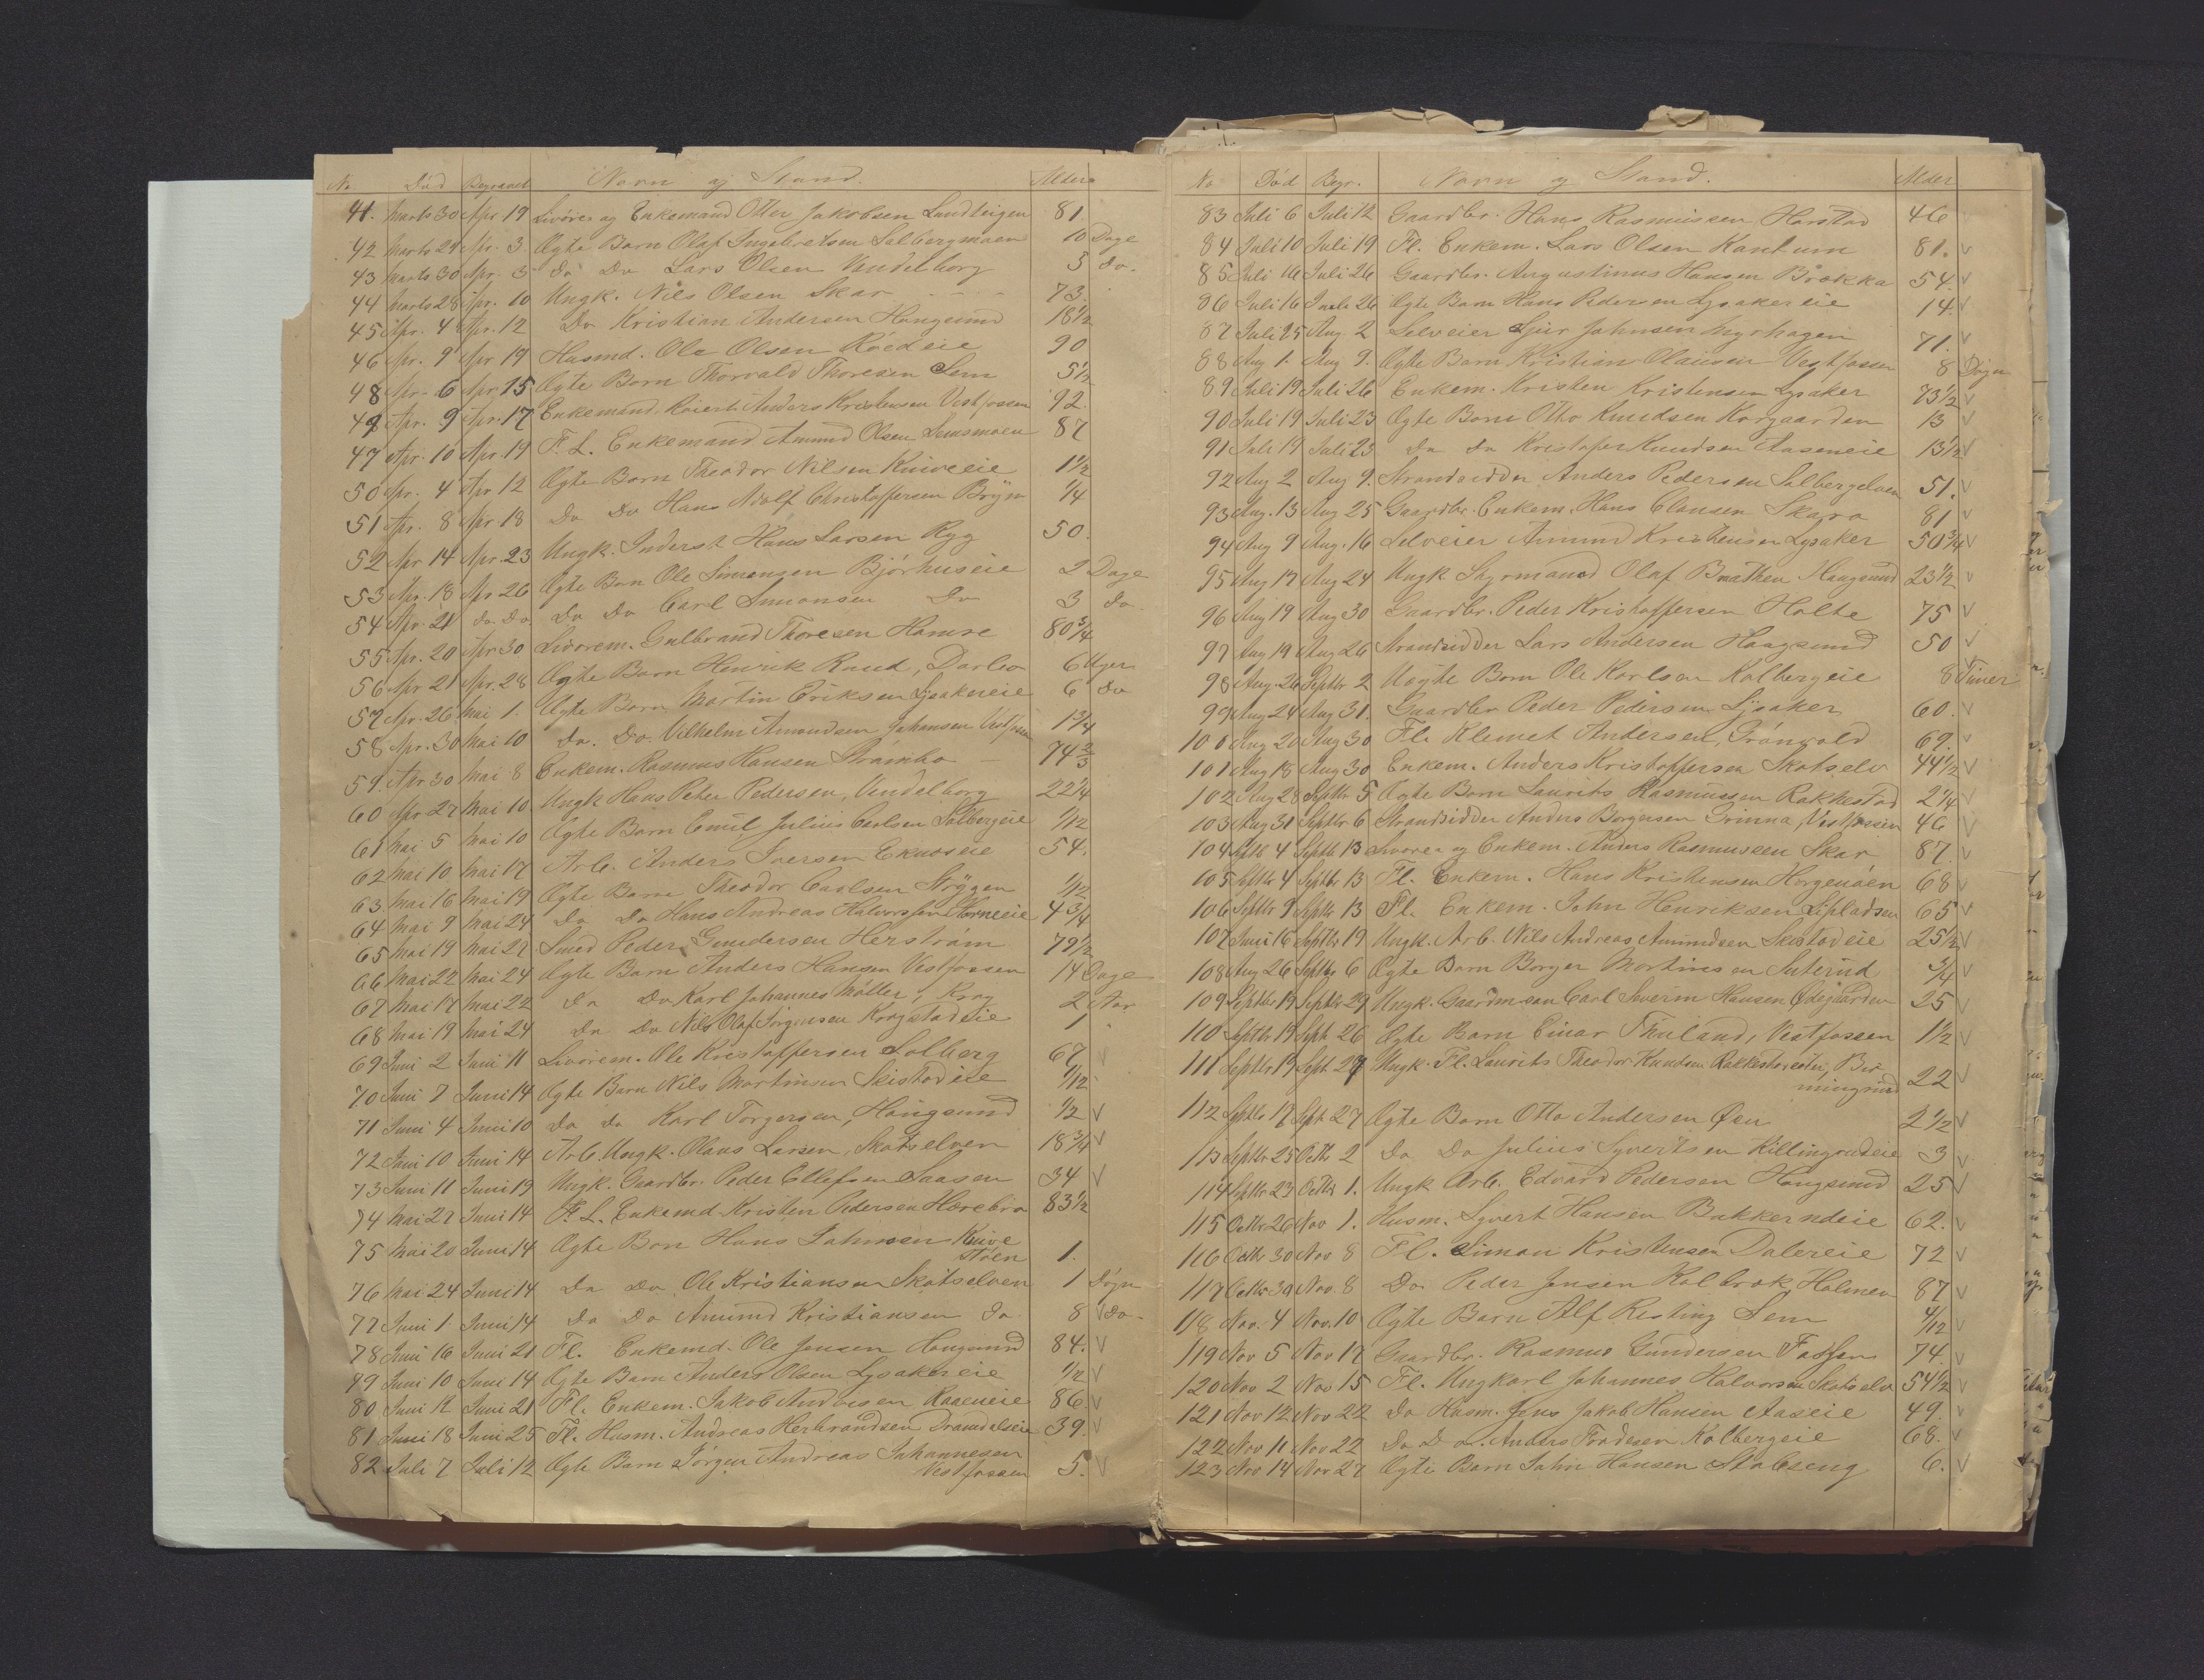 No Död Begravet Navn og Stand. Alder
41. Marts 30 Apr 19 Livöre og Enkemand Otter Jakobsen Lundteigen 81.
42 Marts 24 Apr. 3 Ægte Barn Olaf Ingebretsen Solbergmoen 10 Dage
43 Marts 30 Apr. 3 Do Do Lars Olsen Vendelborg 5 Do.
44 Marts 28 Apr. 10 Ungk. Nils Olsen Skar 73.
45 Apr. 4 Apr. 12 Do Kristian Andersen Hougsund 18½
46 Apr. 9 Apr 19 Husmd. Ole Olsen Röedeie 90
48 Apr. 6 Apr 15 Ægte Barn Thorvald Thoresen Sem 5½
49 Apr. 9 Apr. 17 Enkemand Anders Kristensen Vestfossen 92.
47 Apr. 10 Apr. 19 F. L. Enkemand Amund Olsen Semsmoen 87
50 Apr. 4 Apr 12 Ægte Barn Theodor Nilsen Kniveeie 1½
51 Apr. 8 Apr 18 Do Do Hans Adolf Christoffersen Bryn ¼
52 Apr 14 Apr. 23 Ungk. Inderst Hans Larsen Ryg 50.
53 Apr. 18 Apr 26 Ægte Barn Ole Simonsen Bjørhuseie 2 Dage
54 Apr. 21 Do Do Do Do Carl Simonsen Do 3 Do
55 Apr. 20 Apr 30 Livörem. Gulbrand Thoresen Hamre 80¾
56 Apr 21 Apr. 28 Ægte Barn Henrik Ruud, Darbo 6 Uger
57 Apr. 26 Mai 1. Ægte Barn Martin Eriksen Lysakereie 6 Do
58 Apr. 30 Mai 10 Do. Do. Vilhelm Amundsen Johansen Vestfossen 1¾
59 Apr 30 Mai 8 Enkem. Rasmus Hansen Strömbo 74⅔
60 Apr 27 Mai 10 Ungk Hans Peter Pedersen, Vendelborg 22¼
61 Mai 5 Mai 10 Ægte Barn Emil Julius Carlsen Solbergeie 1/12
62 Mai 10 Mai 17 Arb. Anders Iversen Ekneseie 54.
63 Mai 16 Mai 19 Ægte Barn Theodor Carlsen Strygen 1/12
64 Mai 9 Mai 24 Do Do Hans Andreas Halvorssen Horneeie 4¾
65 Mai 19 Mai 27 Smed Peder Gundersen Herström 79½
66 Mai 22 Mai 24 Ægte Barn Anders Hansen Vestfossen 14 Dage
67 Mai 17 Mai 22 Do Do Karl Johannes Möller, Krog 2 Aar
68 Mai 19 Mai 24 Do Do Nils Olaf Jörgensen Krogstadeie 1 "
69 Juni 2 Juni 11 Livörem. Ole Kristoffersen Solberg 67 v
70 Juni 7 Juni 14 Ægte Barn Nils Martinsen Skistadeie 1/12
71 Juni 4 Juni 10 Do Do Karl Torgersen, Hougsund ½ v
72 Juni 10 Juni 14 Arb. Ungk. Olaus Larsen, Skotselven 18¾ v
73 Juni 11 Juni 19 Ungk. Gaardbr. Peder Ellefsen Saasen 34 v
74 Mai 27 Juni 14 F. L. Enkemd. Kristen Pedersen Horebro 83½
75 Mai 20 Juni 14 Ægte Barn Hans Johnsen Knive
stöen 1.
76 Mai 24 Juni 14 Do Do Ole Kristiansen Skotselven 1 Dögn
77 Juni 1. Juni 14 Do Do Amund Kristiansen Do 8 v Do.
78 Juni 16 Juni 21 Fl. Enkemd. Ole Jensen Hougsund 84. v
79 Juni 10 Juni 14 Ægte Barn Anders Olsen Lysakereie ½ v
80 Juni 12 Juni 21 Fl. Enkem. Jakob Andersen 86. v
81 Juni 18 Juni 25 Fl. Husm. Andreas Herbrandsen 39. v
82 Juli 7 Juli 12 Ægte Barn Jörgen Andreas Johannesen
Vestfossen 5. v
No Död Begr. Navn og Stand. Alder
83 Juli 6 Juli 12 Gaardbr. Hans Rasmussen Horstad 46
84 Juli 10 Juli 19 Fl. Enkem. Lars Olsen Kantum 81. v
85 Juli 16 Juli 26 Gaardbr. Augustinus Hansen Brokka 54. v
86 Juli 16 Juli 26 Ægte Barn Hans Pedersen Lysakereie 14. v
87 Juli 25 Aug 2 Selveier Sjur Johnsen Myrhagen 71. v
88 Aug 1. Aug 9. Ægte Barn Kristian Olausen Vestfossen 8 Dögn
89 Juli 19 Juli 26 Enkem. Kristen Kristensen Lysaker 73½ v
90 Juli 19 Juli 23 Ægte Barn Otto Knudsen Korgaarden 13 v
91 Juli 19 Juli 23 Do Do Kristofer Knudsen Aaseneie 13½ v
92 Aug 2 Aug 9. Strandsidder Anders Pedersen Solbergelven 51. v
93 Aug. 13 Aug 25 Gaardbr. Enkem. Hans Clausen Skara 81 v
94 Aug 9 Aug. 16 Selveier Amund Kristensen Lysaker 50¾ v
95 Aug 17 Aug 24 Ungk Olaf Braathen Hougsund 23½ v
96 Aug 19 Aug 30 Gaardbr. Peder Kristoffersen Holte 75 v
97 Aug 19 Aug 26 Strandsidder Lars Andersen Hougsund 50 v
98 Aug. 26 Septbr 2 Uægte Barn Ole Karlsen Kolbergeie 8 Timer
99 Aug 24 Aug 31. Gaardbr Peder Pedersen Lysaker 60. v
100 Aug 20 Aug 30 Fl. Klemet Andersen, Grönvold 69. v
101 Aug 18 Aug 30 Enkem. Anders Kristoffersen Skotselv 44½ v
102 Aug 28 Septbr 5 Ægte Barn Laurits Rasmussen Rakkestad 2¼ v
103 Aug 31 Septbr 6 Strandsidder Anders Borgersen Grinna, Vestfossen 46 v
104 Septb 4 Septb 13 Livöre og Enkem. Anders Rasmussen Skar 87. v
105 Septbr 4 Septbr 13 Fl. Enkem. Hans Kristensen 68 v
106 Septbr 9 Septbr 13 Fl. Enkem. John Henriksen 65 v
107 Juni 16 Septbr 19 Ungk. Arb. Nils Andreas Amundsen Skistadeie 25½ v
108 Aug 26 Septbr 6 Ægte Barn Borger Martinsen Suterud ¾ v
109 Septbr 19 Septbr 29 Ungk. Gaardmsøn Carl Severin Hansen Ødegaarden 25 v
110 Septbr 19 Sept 26 Ægte Barn Einar Thuland, Vestfossen 1½ v
111 Septbr 19 Sept. 27 Ungk. Fl. Laurits Theodor Knudsen Rakkestadeie, Ber
mingrud 22 v
112 Septbr 19 Sept 27 Ægte Barn Otto Andersen Øen 2½ v
113 Septbr 25 Octbr 2 Do Do Julius Syvertsen Killingrudeie 3 v
114 Septbr 23 Octbr 1. Ungk Arb. Edvard Pedersen Hougsund 25 v
115 Octbr 26 Nov 1. Husm. Syvert Hansen Bakkerudeie 62. v
116 Octbr 30 Nov 8 Fl. Simon Kristensen Dalereie 72 v
117 Octbr 30 Nov 8 Do. Peder Jensen Kolbrek Holmen 87 v
118 Nov. 4 Nov. 10 Ægte Barn Alf Resting Sem 4/12 v
119 Nov 5 Nov 17 Gaardbr. Rasmus Gundersen Fossen 74. v
120 Nov 2 Nov 15 Fl. Ungkarl Johannes Halvorsen Skotselv 54½ v
121 Nov 12 Nov 22 Do Husm. Jens Jakob Hansen Aaseie 49. v
122 Nov 11 Nov 22 Do Do. Anders Frodesen Kolbergeie 68. v
123 Nov 14 Nov 27 Ægte Barn John Hansen Stabseng 6. v